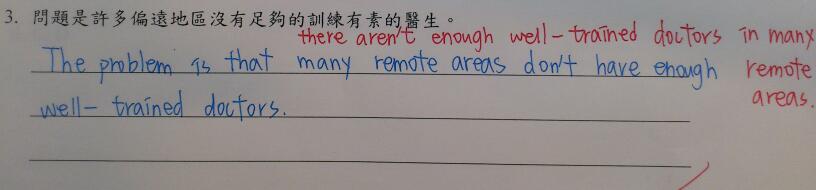 3. 問題是許多偏遠地區沒有足夠的訓練有素的醫生。
there aren't enough well-trained doctors in many
The problem is that many remote areas don't have enough
remote
well-trained doctors.
areas.